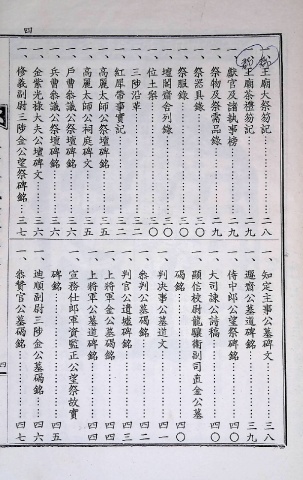 四
一、王廟大祭笏記……二八
一、王廟茶禮笏記……二九
一、獻官及諸執事榜……二九
一、祭物及祭需品錄……二九
一、祭器具錄……三〇
一、祭服錄……三〇
一、壇閣齋舍列錄……三〇
一、位土案……三〇
一、三陟沿革……三一
一、紅犀帶事實記……三二
一、高麗太師公祭壇碑銘……三五
一、高麗太師公祠庭碑文……三五
一、戶曹參議公祭壇碑銘……三六
一、兵曹參議公祭壇碑銘……三六
一、金紫光祿大夫公壇碑文……三六
一、修義副尉三陟金公望祭碑銘……三七
一、知定主事公墓碑文……三八
一、遯齋公墓道碑銘……三九
一、侍中郎公望祭碑銘……四〇
一、大司諫公詩稿……四〇
一、顯信校尉龍驤衛副司直金公墓
碣銘……四〇
一、判决事公墓道文……四一
一、參判公墓碣銘……四二
一、判官公遺墟碑銘……四三
一、上將軍金公墓碣銘……四四
一、上將軍公墓道碑銘……四四
一、宣務仕郎軍資監正公望祭故實
碑銘……四五
一、迪順副尉三陟金公墓碣銘……四六
一、參贊官公墓碣銘……四七
四